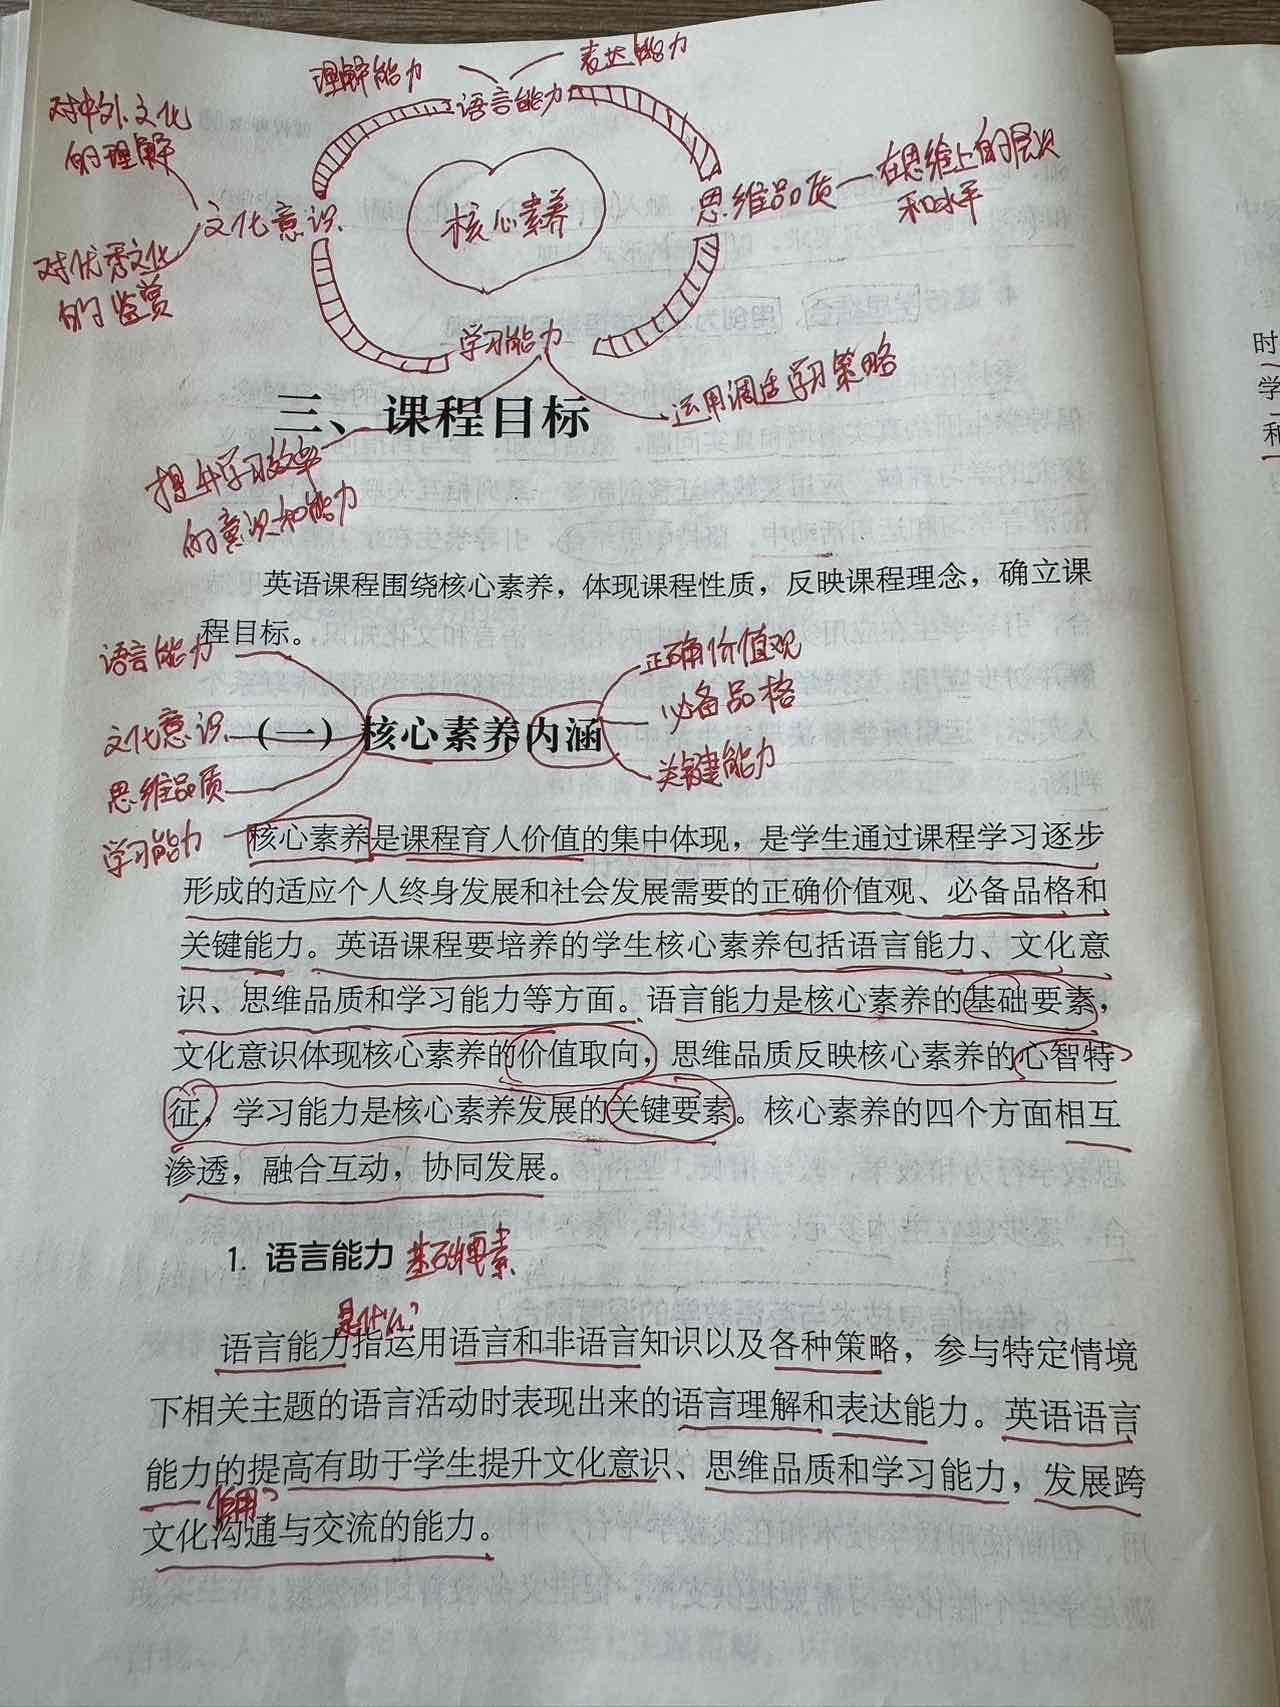 理解能力
表达能力
语言能力
对中外文化
的理解
文化意识
对优秀文化
的鉴赏
核心素养
思维品质
在思维上的层次
和水平
学习能力
运用调适学习策略
三、课程目标
提升学习效率
的意识和能力
英语课程围绕核心素养，体现课程性质，反映课程理念，确立课
程目标。
语言能力
文化意识
思维品质
学习能力
（一）核心素养内涵
正确价值观
必备品格
关键能力
核心素养是课程育人价值的集中体现，是学生通过课程学习逐步
形成的适应个人终身发展和社会发展需要的正确价值观、必备品格和
关键能力。英语课程要培养的学生核心素养包括语言能力、文化意
识、思维品质和学习能力等方面。语言能力是核心素养的基础要素，
文化意识体现核心素养的价值取向，思维品质反映核心素养的心智特
征，学习能力是核心素养发展的关键要素。核心素养的四个方面相互
渗透，融合互动，协同发展。
1. 语言能力 基础要素
是什么？
语言能力指运用语言和非语言知识以及各种策略，参与特定情境
下相关主题的语言活动时表现出来的语言理解和表达能力。英语语言
能力的提高有助于学生提升文化意识、思维品质和学习能力，发展跨
作用？
文化沟通与交流的能力。
时
学
和